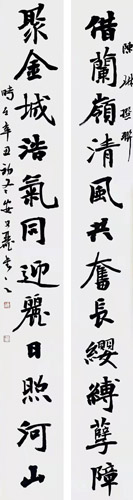 借蘭嶺清風共奮長纓縛孽障
撰聯
聚金城浩氣同迎麗日照河山
時在辛丑初冬